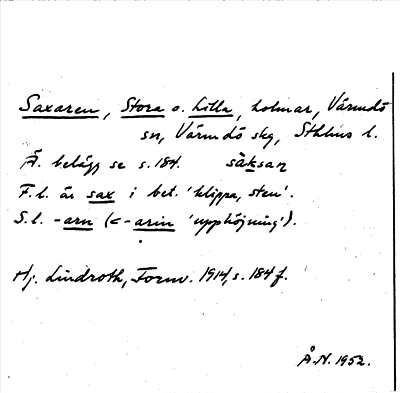 Saxaren, Stora o. Lilla, holmar, Värmdö
sn, Värmdö skg, Sthlms l.
Ä. belägg se s. 184. säksan
F. l. är sax i bet. 'klippa, sten'.
S. l. -arn (<-arin 'upphöjning').
Hj. Lindroth, Fornv. 1914, s. 184 f.
Å.N. 1952.